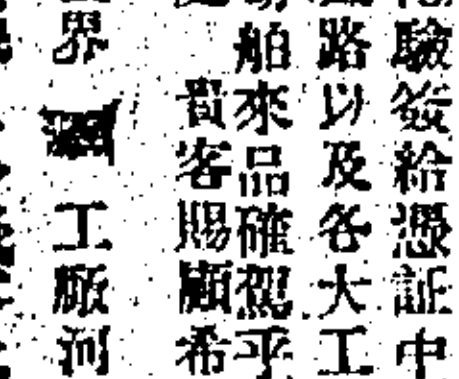 驗簽給憑証中
路以及各大工
舶來品確駕乎
貴客賜顧希
界
工廠河